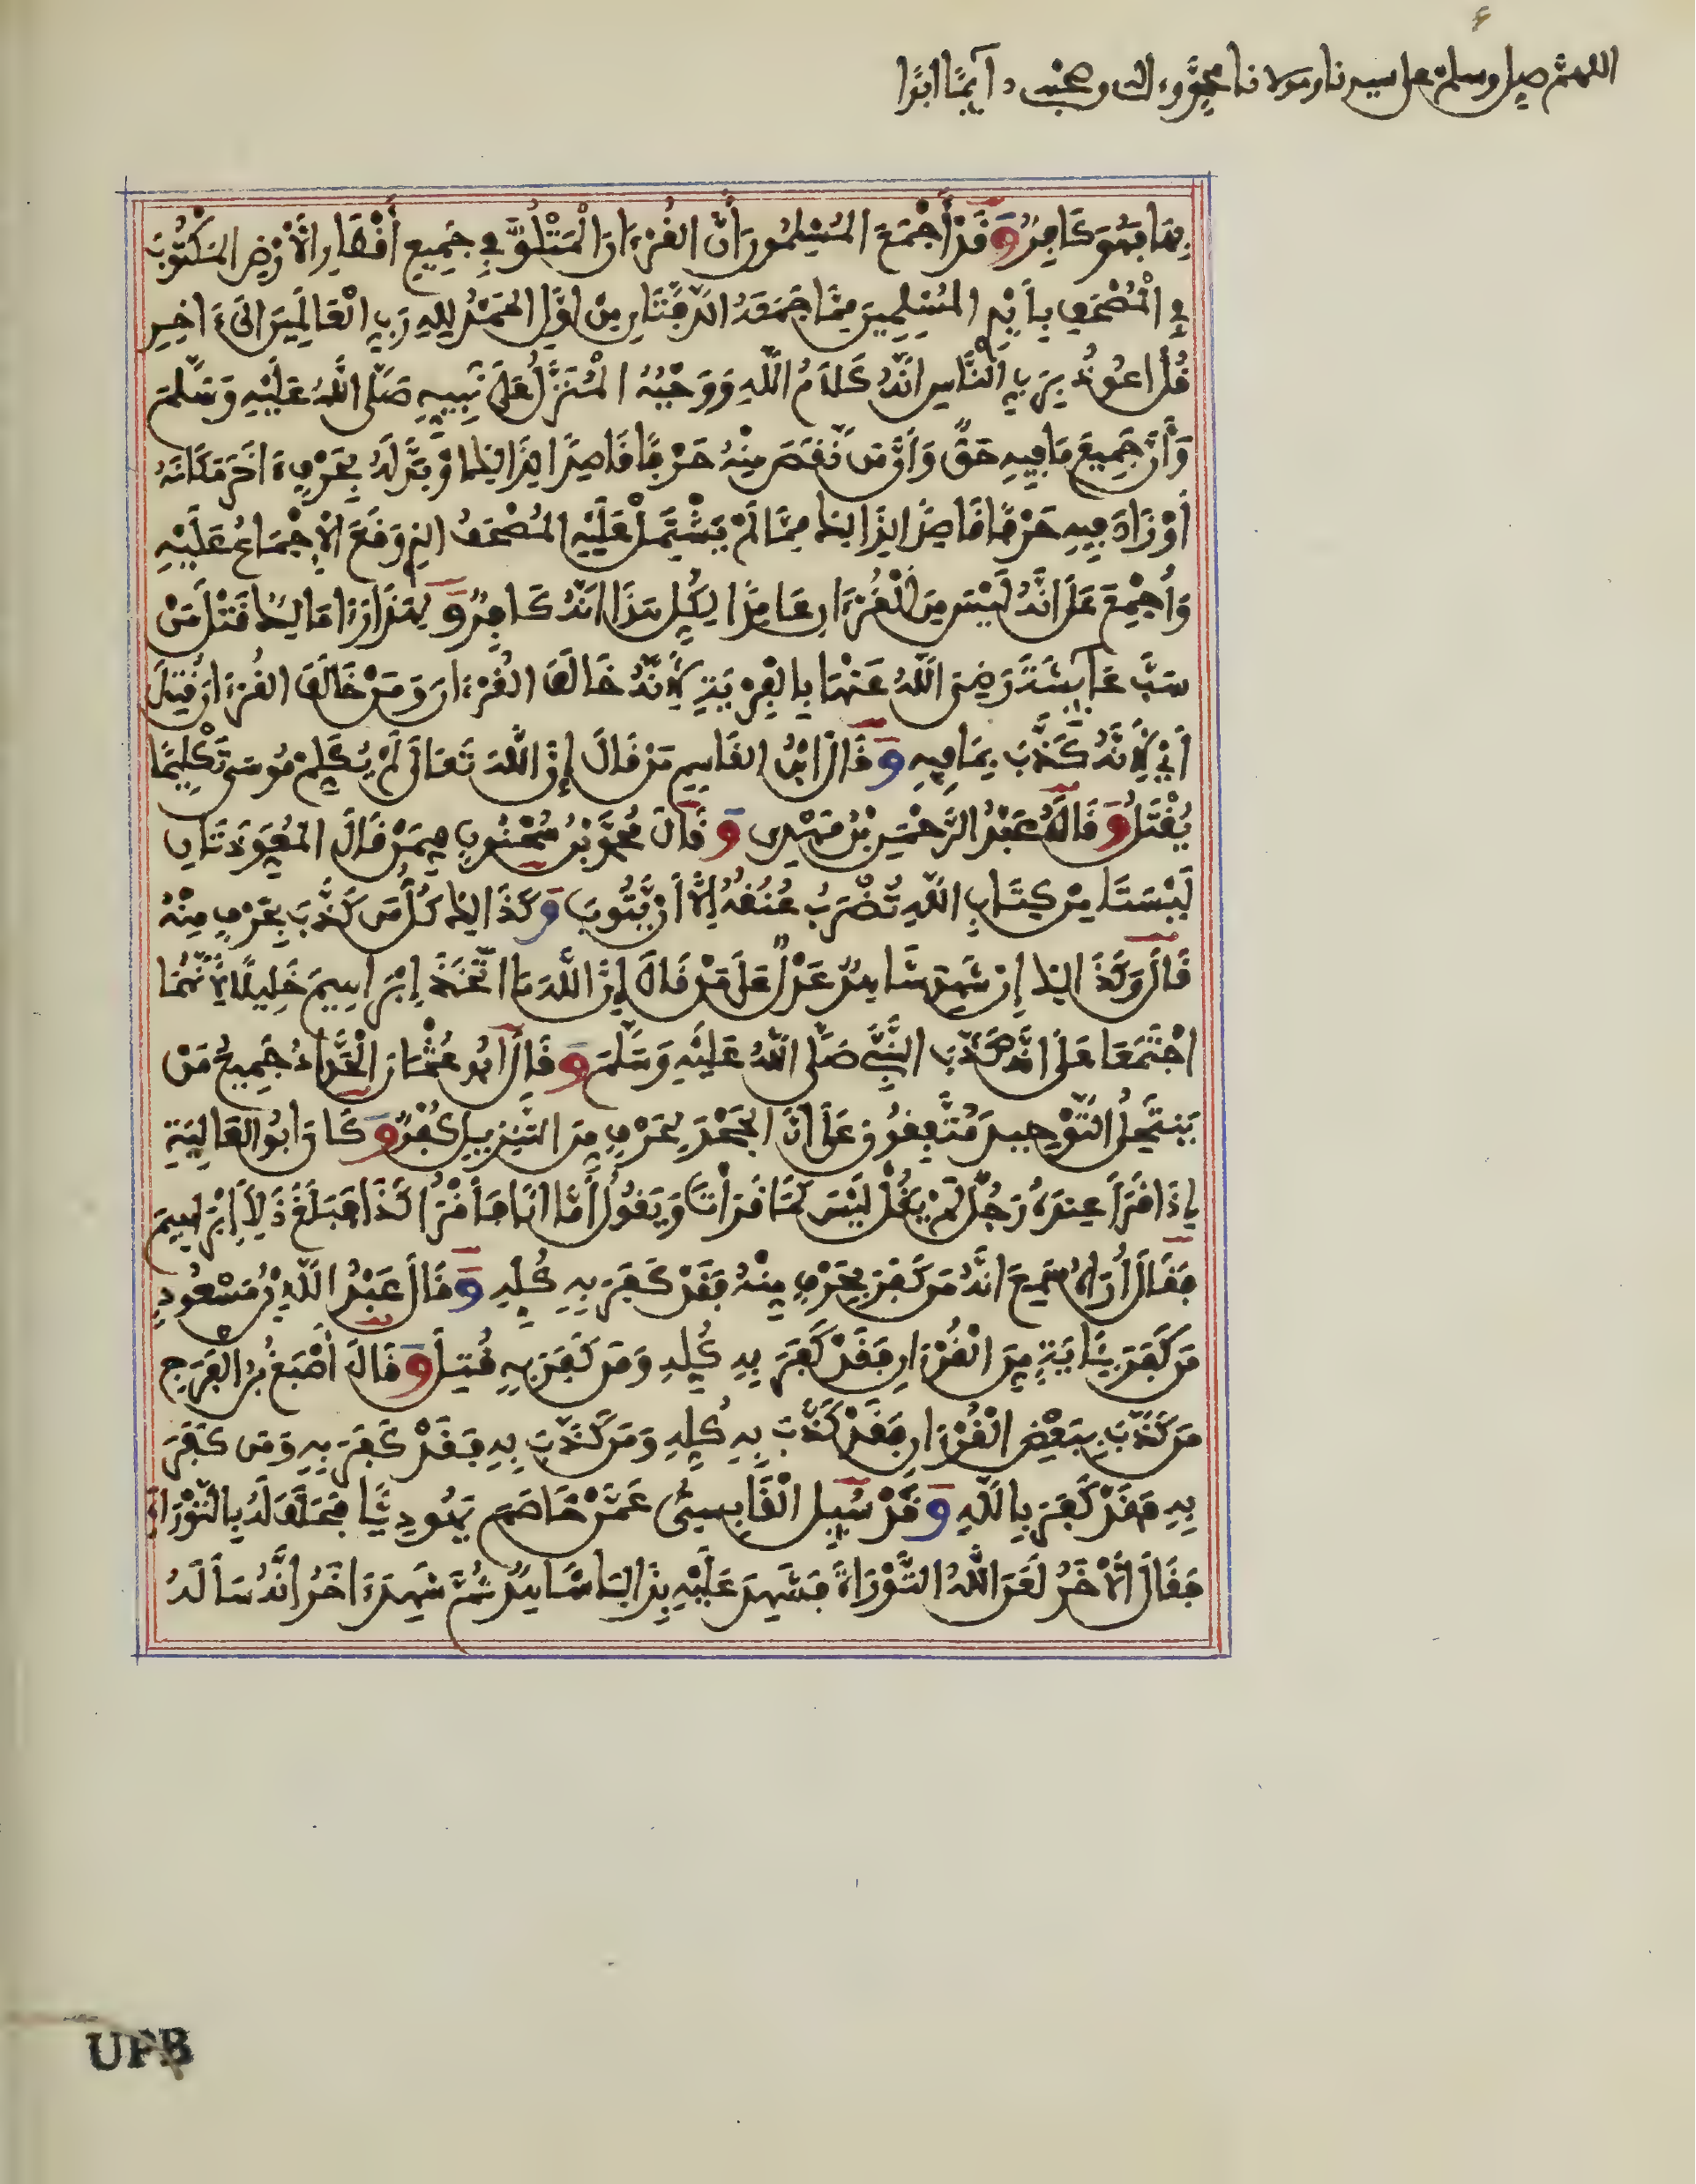 اللهم صل وسلم على سيدنا ومولانا محمد وءاله وصحبه دآيما ابدا
بِهَا فَهُوَ كَافِرٌ وَقَدْ أَجْمَعَ الْمُسْلِمُونَ أَنَّ الْقُرْءَانَ الْمَتْلُوَّ فِي جَمِيعِ أَقْطَارِ الْأَرْضِ الْمَكْتُوبَ
فِي الْمُصْحَفِ بِأَيْدِي الْمُسْلِمِينَ مِمَّا جَمَعَهُ الدَّفَّتَانِ مِنْ أَوَّلِ الْحَمْدُ لِلَّهِ رَبِّ الْعَالَمِينَ إِلَى ءَاخِرِ
قُلْ أَعُوذُ بِرَبِّ النَّاسِ أَنَّهُ كَلَامُ اللَّهِ وَوَحْيُهُ الْمُنَزَّلُ عَلَى نَبِيِّهِ صَلَّى اللَّهُ عَلَيْهِ وَسَلَّمَ
وَأَنَّ جَمِيعَ مَا فِيهِ حَقٌّ وَأَنَّ مَن نَقَصَ مِنْهُ حَرْفًا قَاصِدًا لِذَالِكَ أَوْ بَدَّلَهُ بِحَرْفٍ ءَاخَرَ مَكَانَهُ
أَوْ زَادَ فِيهِ حَرْفًا قَاصِدًا لِذَالِكَ مِمَّا لَمْ يَشْتَمِلْ عَلَيْهِ الْمُصْحَفُ الَّذِي وَقَعَ الْإِجْمَاعُ عَلَيْهِ
وَأُجْمِعَ عَلَى أَنَّهُ لَيْسَ مِنَ الْقُرْءَانِ عَامِدًا لِكُلِّ هَذَا أَنَّهُ كَافِرٌ وَلِهَذَا رَءَا مَالِكٌ قَتْلَ مَنْ
سَبَّ عَآئِشَةَ رَضِيَ اللَّهُ عَنْهَا بِالْفِرْيَةِ لِأَنَّهُ خَالَفَ الْقُرْءَانَ وَمَنْ خَالَفَ الْقُرْءَانَ قُتِلَ
أَيْ لِأَنَّهُ كَذَّبَ بِمَا فِيهِ وَقَالَ ابْنُ الْقَاسِمِ مَنْ قَالَ إِنَّ اللَّهَ تَعَالَى لَمْ يُكَلِّمْ مُوسَى تَكْلِيمًا
يُقْتَلُ وَقَالَهُ عَبْدُ الرَّحْمَنِ بْنُ مَهْدِي وَقَالَ مُحَمَّدُ بْنُ سُحْنُونٍ فِيمَنْ قَالَ الْمُعَوِّذَتَانِ
لَيْسَتَا مِنْ كِتَابِ اللَّهِ تُضْرَبُ عُنُقُهُ إِلَّا أَنْ يَتُوبَ وَكَذَالِكَ كُلُّ مَن كَذَّبَ بِحَرْفٍ مِنْهُ
قَالَ وَكَذَالِكَ إِنْ شَهِدَ شَاهِدٌ عَدْلٌ عَلَى مَنْ قَالَ إِنَّ اللَّهَ مَا اتَّخَذَ إِبْرَاهِيمَ خَلِيلًا لِأَنَّهُمَا
اجْتَمَعَا عَلَى أَنَّهُ كَذَّبَ النَّبِيَّ صَلَّى اللَّهُ عَلَيْهِ وَسَلَّمَ وَقَالَ أَبُو عُثْمَانَ الْحَدَّادُ جَمِيعُ مَنْ
يَنْتَحِلُ التَّوْحِيدَ مُتَّفِقُونَ عَلَى أَنَّ الْجَحْدَ بِحَرْفٍ مِنَ التَّنْزِيلِ كُفْرٌ وَكَانَ أَبُو الْعَالِيَةِ
إِذَا قَرَأَ عِنْدَهُ رَجُلٌ لَمْ يَقُلْ لَيْسَ كَمَا قَرَأْتَ وَيَقُولُ أَمَّا أَنَا فَأَقْرَأُ كَذَا فَبَلَغَ ذَلِكَ إِبْرَاهِيمَ
فَقَالَ أُرَاهُ سَمِعَ أَنَّهُ مَن كَفَرَ بِحَرْفٍ مِنْهُ فَقَدْ كَفَرَ بِهِ كُلِّهِ وَقَالَ عَبْدُ اللَّهِ بْنُ مَسْعُودٍ
مَن كَفَرَ بِئَايَةٍ مِنَ الْقُرْءَانِ فَقَدْ كَفَرَ بِهِ كُلِّهِ وَمَن كَفَرَ بِهِ قُتِلَ وَقَالَ أَصْبَغُ بْنُ الْفَرَجِ
مَن كَذَّبَ بِبَعْضِ الْقُرْءَانِ فَقَدْ كَذَّبَ بِهِ كُلِّهِ وَمَن كَذَّبَ بِهِ فَقَدْ كَفَرَ بِهِ وَمَن كَفَرَ
بِهِ فَقَدْ كَفَرَ بِاللَّهِ وَقَدْ سُئِلَ الْقَابِسِيُّ عَمَّنْ خَاصَمَ يَهُودِيًّا فَحَلَفَ لَهُ بِالتَّوْرَاةِ
فَقَالَ الْآخَرُ لَعَنَ اللَّهُ التَّوْرَاةَ فَشَهِدَ عَلَيْهِ بِذَالِكَ شَاهِدٌ ثُمَّ شَهِدَ ءَاخَرُ أَنَّهُ سَأَلَهُ
UFB